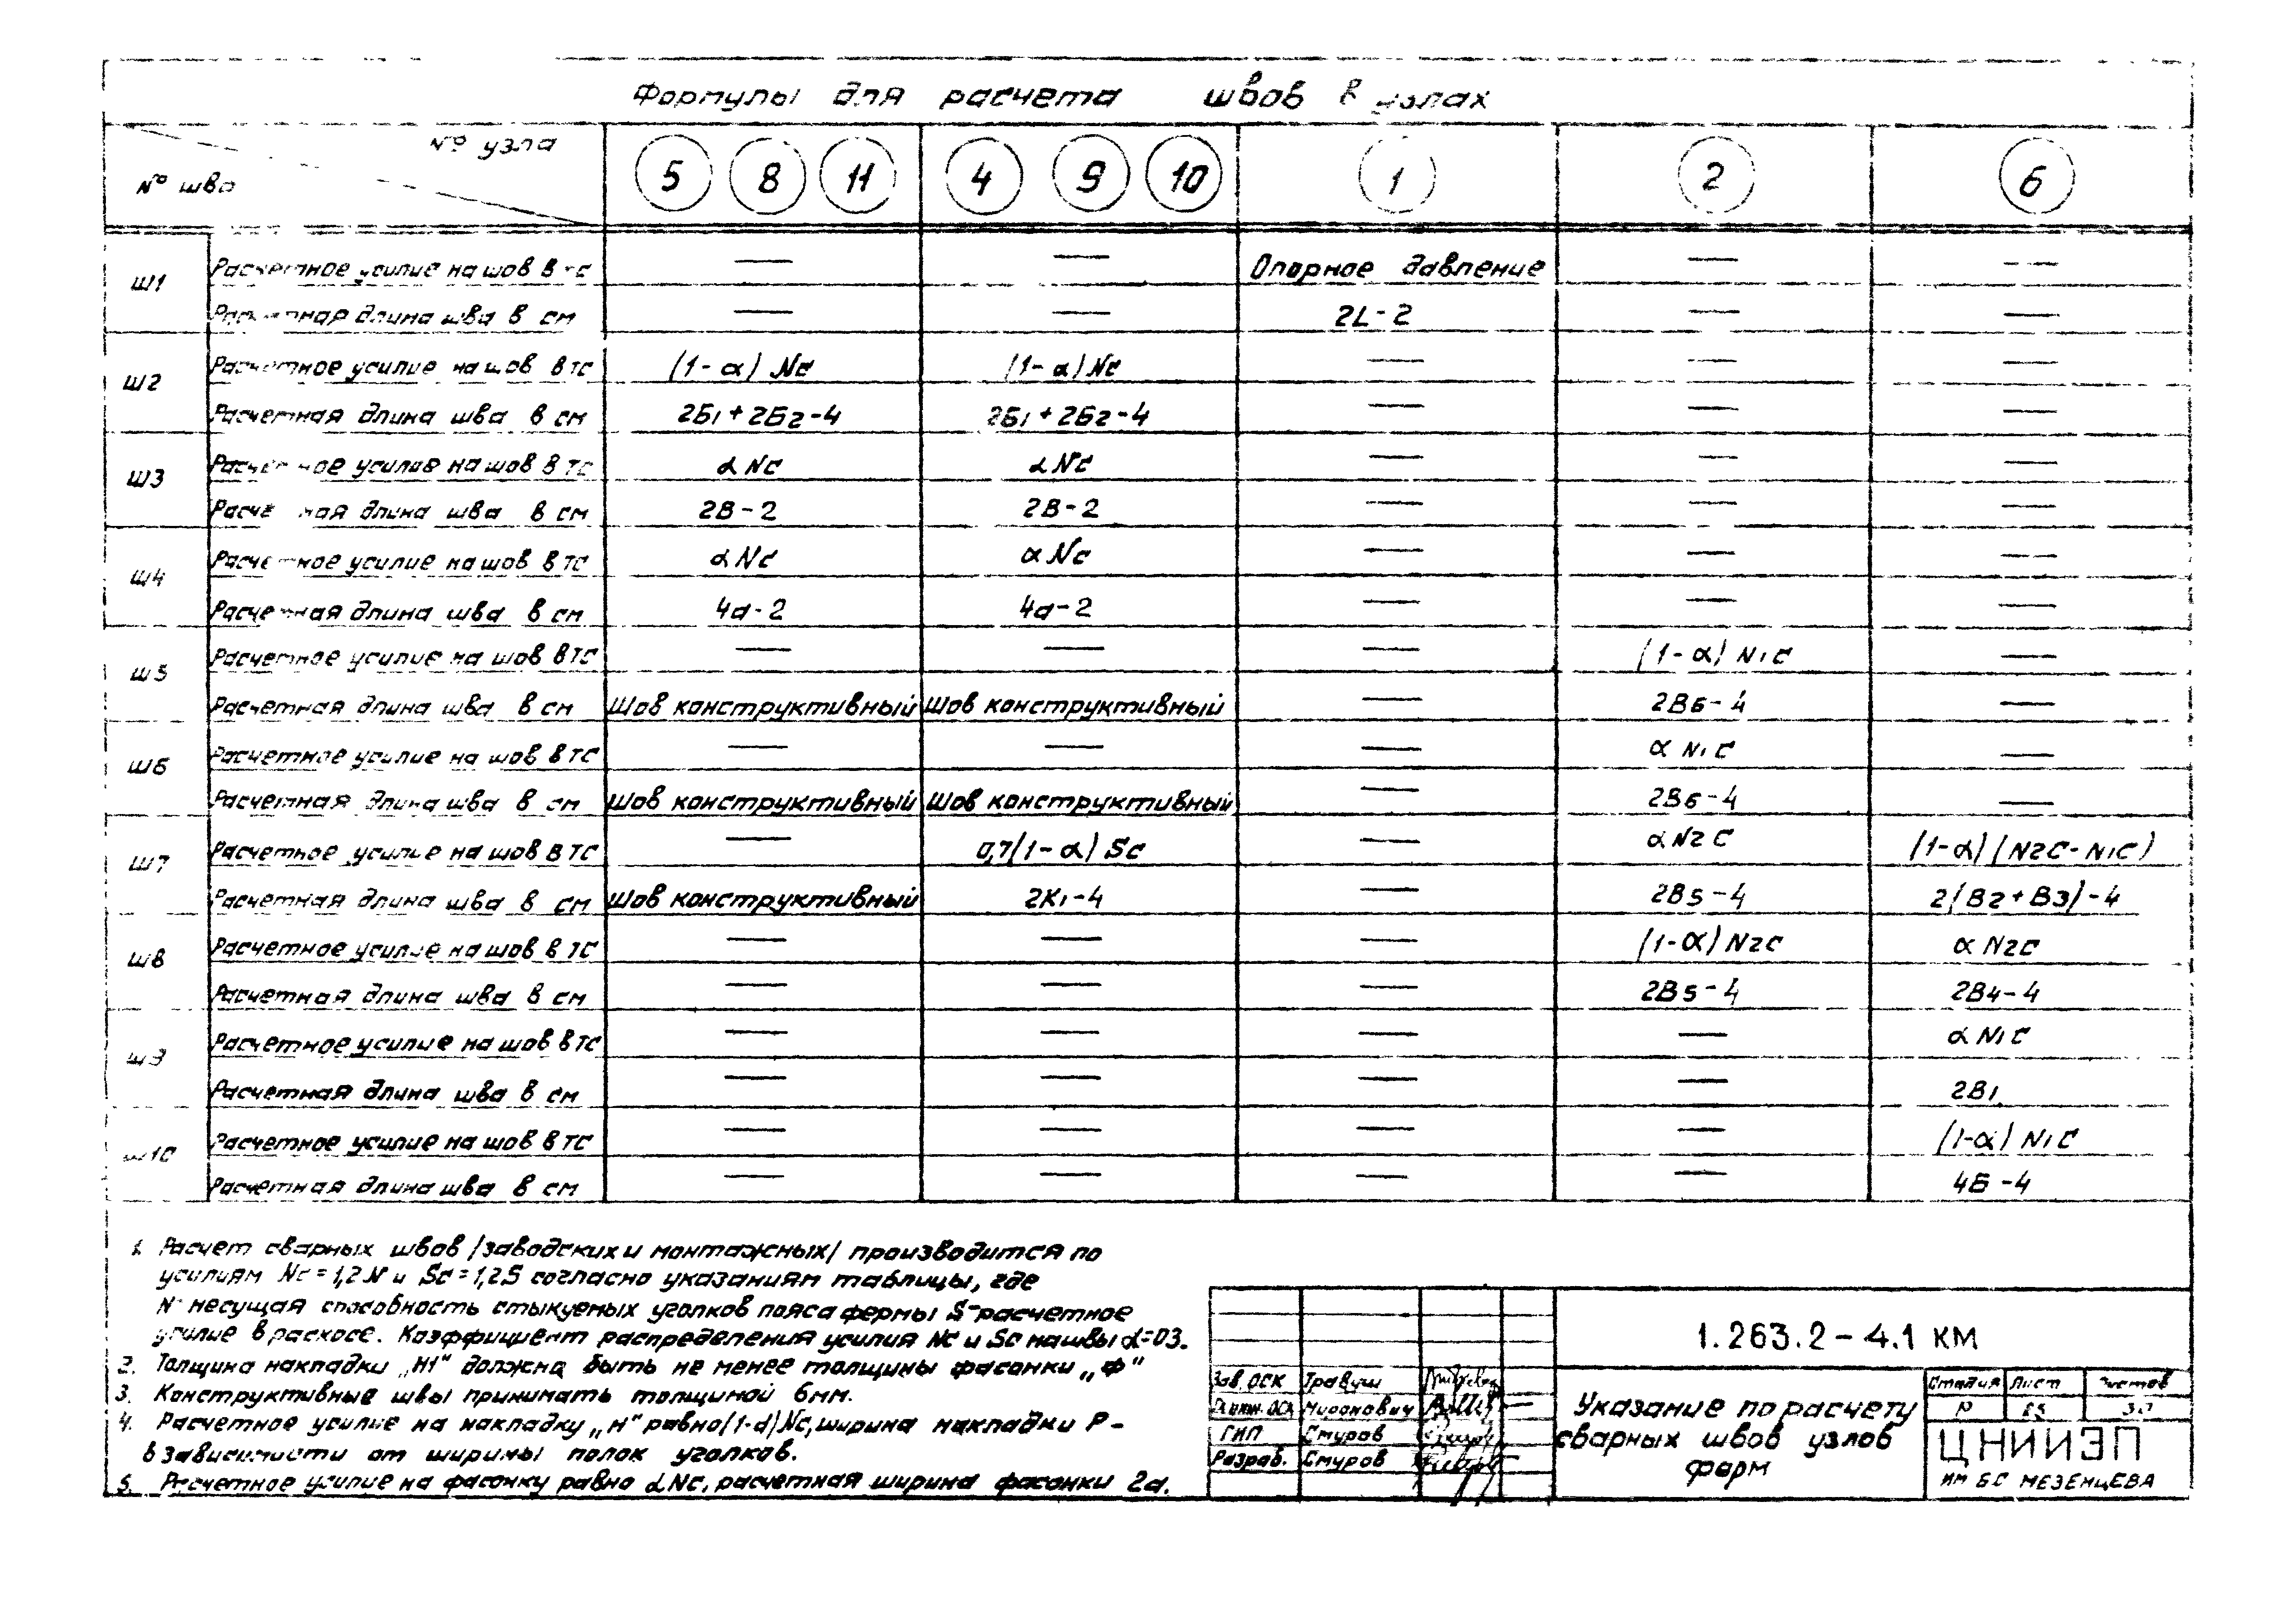 Формулы для расчета швов в узлах
№ узла
№ шва
5 8 11 4 9 10 1 2 6
Ш1 Расчетное усилие на шов в тс — — Опорное давление — —
Расчетная длина шва в см — — 2L-2 — —
Ш2 Расчетное усилие на шов в тс (1-α) Nc (1-α) Nc — — —
Расчетная длина шва в см 2Б1+2Б2-4 2Б1+2Б2-4 — — —
Ш3 Расчетное усилие на шов в тс αNc αNc — — —
Расчетная длина шва в см 2В-2 2В-2 — — —
Ш4 Расчетное усилие на шов в тс αNc αNc — — —
Расчетная длина шва в см 4а-2 4а-2 — — —
Ш5 Расчетное усилие на шов в тс — — — (1-α) N1c —
Расчетная длина шва в см Шов конструктивный Шов конструктивный — 2В6-4 —
Ш6 Расчетное усилие на шов в тс — — — αN1c —
Расчетная длина шва в см Шов конструктивный Шов конструктивный — 2В6-4 —
Ш7 Расчетное усилие на шов в тс — 0,7(1-α) Sc — αN2c (1-α)(N2c-N1c)
Расчетная длина шва в см Шов конструктивный 2К1-4 — 2В5-4 2(В2+В3)-4
Ш8 Расчетное усилие на шов в тс — — — (1-α) N2c αN2c
Расчетная длина шва в см — — — 2В5-4 2В4-4
Ш9 Расчетное усилие на шов в тс — — — — αN1c
Расчетная длина шва в см — — — — 2В1
Ш10 Расчетное усилие на шов в тс — — — — (1-α) N1c
Расчетная длина шва в см — — — — 4Б-4
1. Расчет сварных швов /заводских и монтажных/ производится по
усилиям Nc=1,2N и Sc=1,2S согласно указаниям таблицы, где
N- несущая способность стыкуемых уголков пояса фермы S-расчетное
усилие в раскосе. Коэффициент распределения усилия Nc и Sc на швы α=03.
2. Толщина накладки „Н1" должна быть не менее толщины фасонки „Ф"
3. Конструктивные швы принимать толщиной 6мм.
4. Расчетное усилие на накладку „Н" равно (1-α)Nc, ширина накладки Р-
в зависимости от ширины полок уголков.
5. Расчетное усилие на фасонку равно αNc, расчетная ширина фасонки 2а.
1.263.2-4.1 КМ
Зав. ОСК Травуш
Гл.инж. ОСК Миронович
ГИП Смуров
Разраб. Смуров
Указание по расчету
сварных швов узлов
ферм
Стадия Лист Листов
Р
ЦНИИЭП
ИМ БС МЕЗЕНЦЕВА